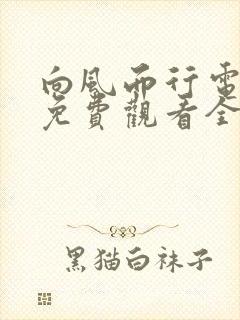 向风而行電
免費觀看全
黑猫白袜子